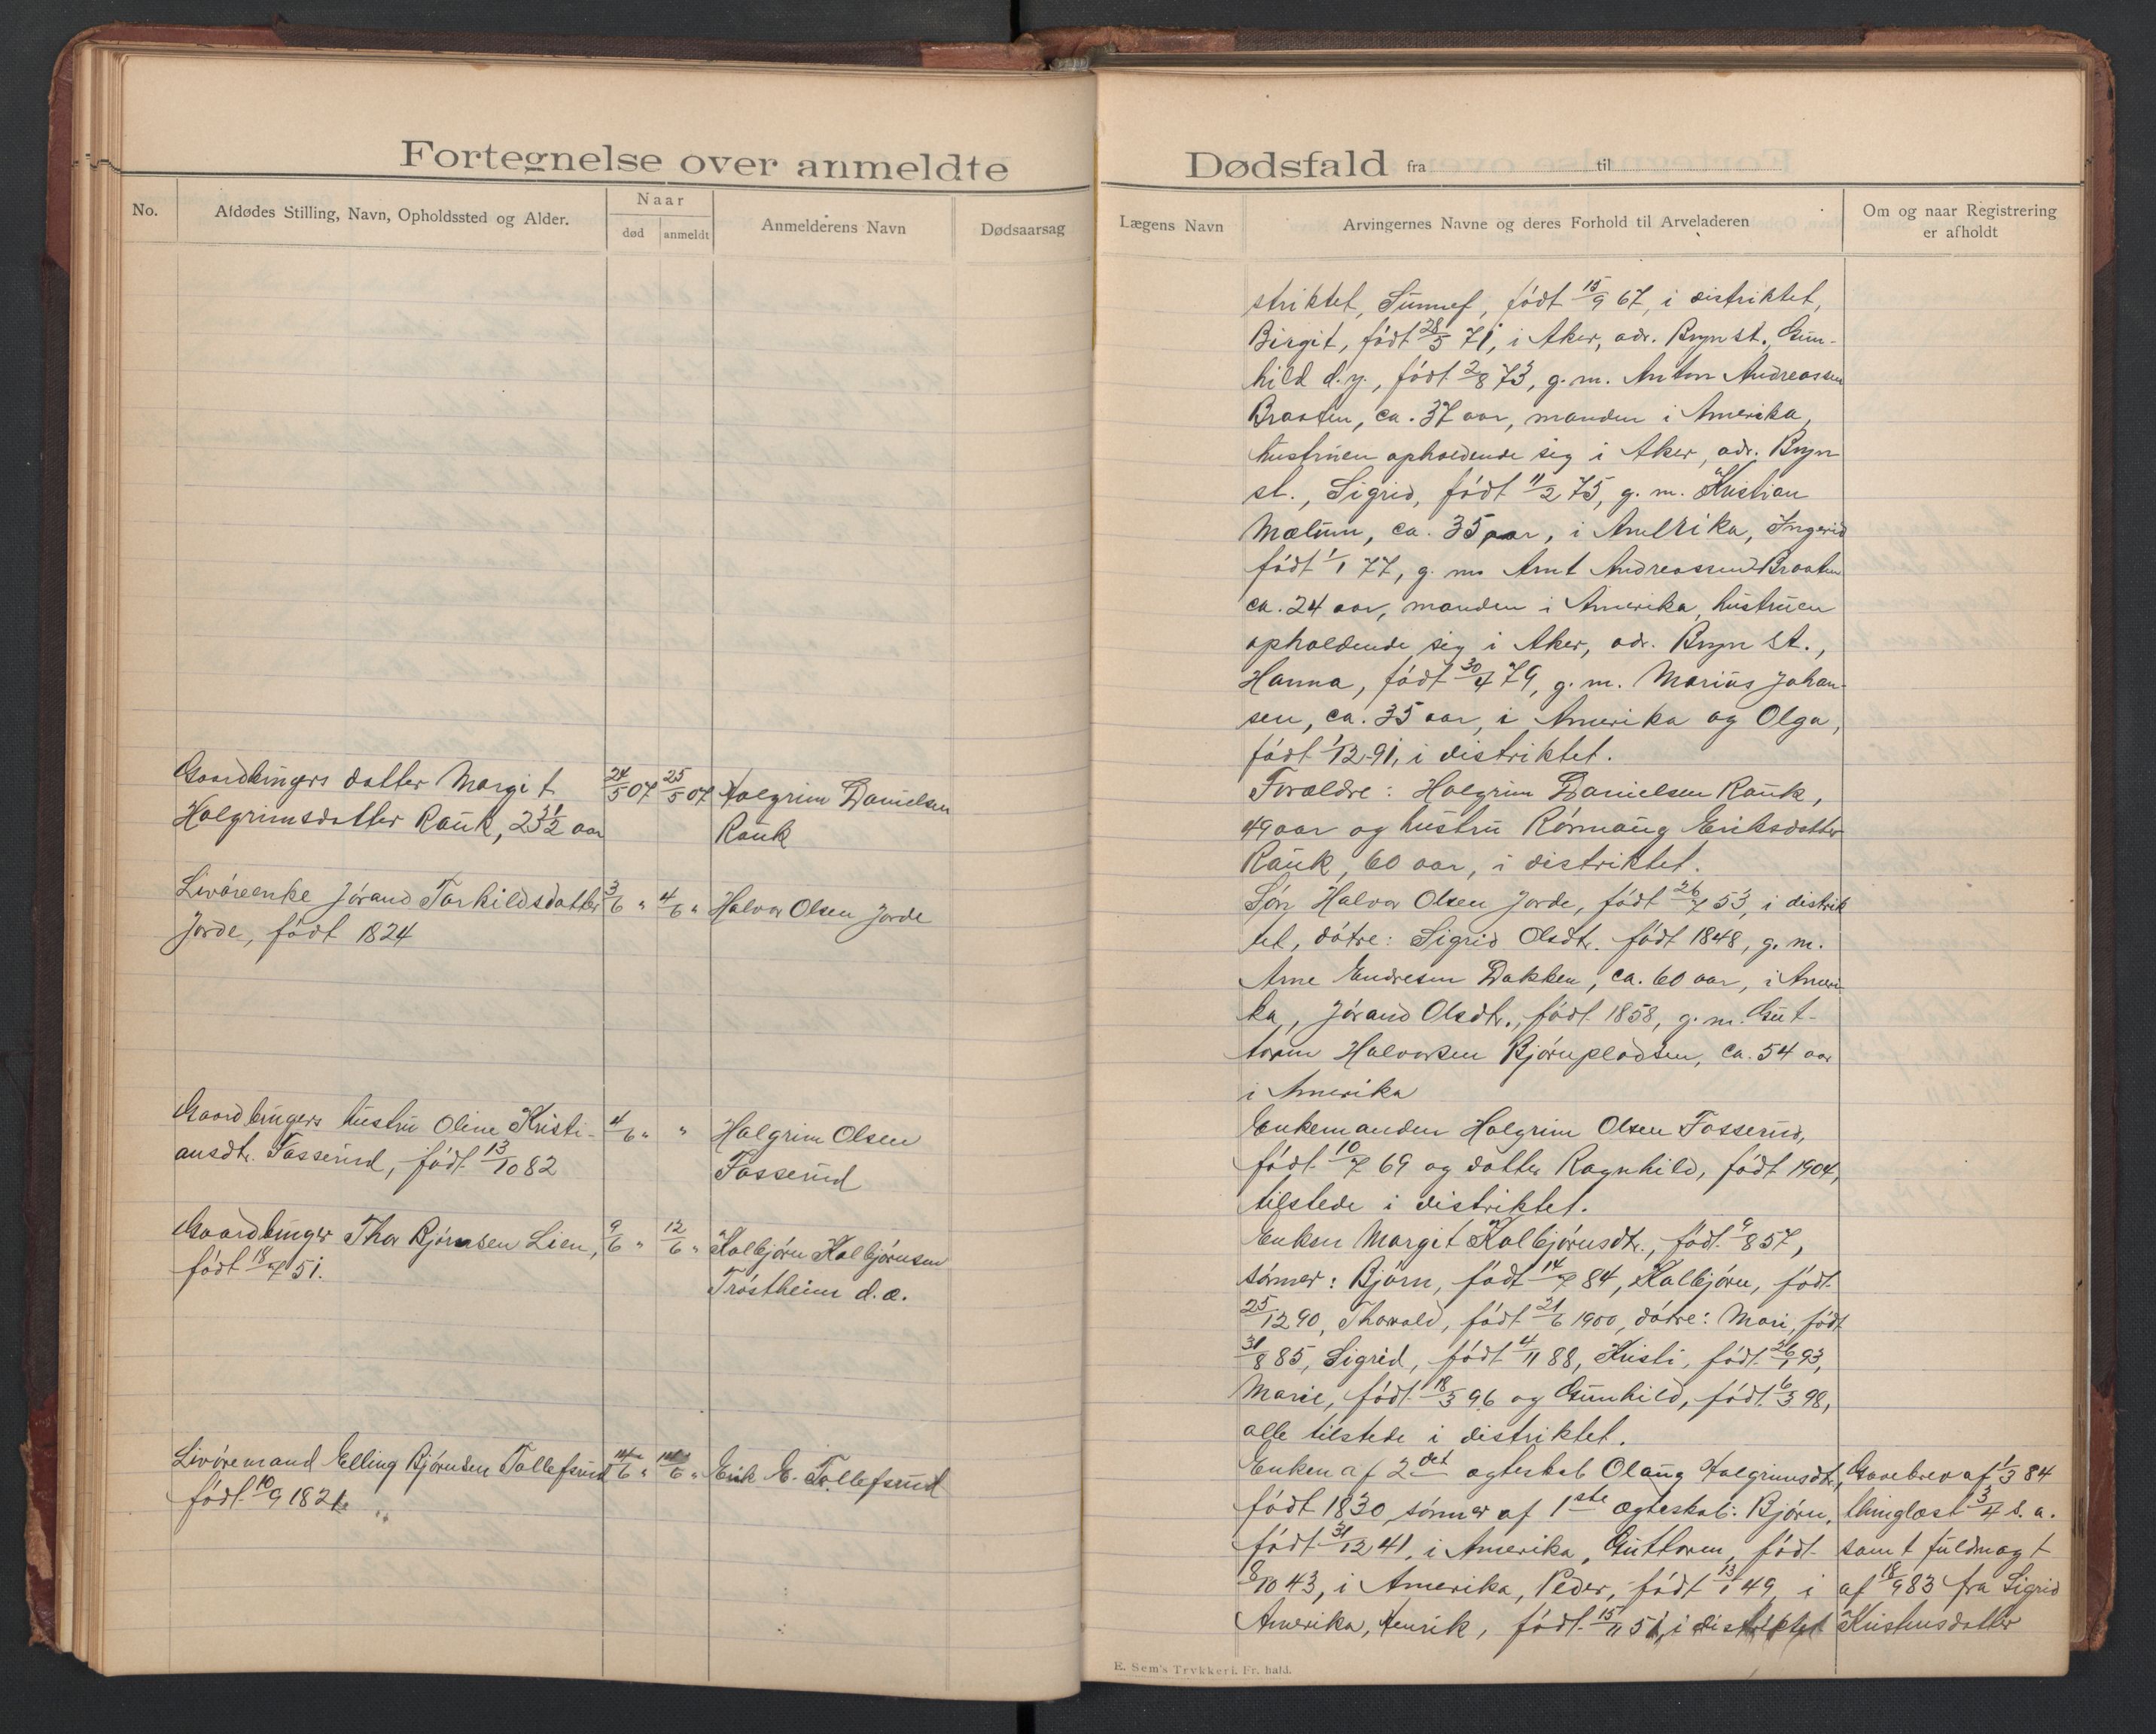 Fortegnelse over anmeldte
No.
Afdødes Stilling, Navn, Opholdssted og Alder.
Naar
død
anmeldt
Anmelderens Navn
Dødsaarsag
Gaardbrugers datter Margit 24/5 07 25/5 07 Halgrim Danielsen
Halgrimsdatter Rauk, 23 1/2 aar Rauk
Livøreenke Jørand Torkildsdatter 3/6 " 4/6 " Halvor Olsen Jorde
Jorde, født 1824
Gaardbrugers hustru Oline Kristi- 4/6 " " Halgrim Olsen
ansdtr. Fosserud, født 13/10 82 Fosserud
Gaardbruger Thor Bjørnsen Lien, 9/6 " 12/6 " Kolbjørn Kolbjørnsen
født 18/7 51. Trøstheim d.æ.
Livøremand Elling Bjørnsen Tollefsrud 14/6 " /6 " Erik E. Tollefsrud
født 10/9 1821
Dødsfald fra til
Lægens Navn
Arvingernes Navne og deres Forhold til Arveladeren
Om og naar Registrering
er afholdt
striktet, Sunnef, født 15/9 67, i distriktet,
Birgit, født 28/5 71, i Aker, adr. Bryn st., Gun-
hild d.y., født 2/8 73, g.m. Anton Andreassen
Braaten, ca. 37 aar, manden i Amerika,
hustruen opholdende sig i Aker, adr. Bryn
st., Sigrid, født 11/2 75, g.m. Kristian
Mælum, ca. 35 aar, i Amerika, Ingerid
født 1/1 77, g.m. Arnt Andreassen Braaten
ca. 24 aar, manden i Amerika, hustruen
opholdende sig i Aker, adr. Bryn st.,
Hanna, født 30/4 79, g.m. Marius Johan-
sen, ca. 35 aar, i Amerika og Olga,
født 1/12 91, i distriktet.
Forældre: Halgrim Danielsen Rauk,
49 aar og hustru Rønnaug Eriksdatter
Rauk, 60 aar, i distriktet.
Søn Halvor Olsen Jorde, født 26/7 53, i distrik
tet, døtre: Sigrid Olsdtr. født 1848, g.m.
Arne Endresen Dokken, ca. 60 aar, i Ameri
ka, Jørand Olsdtr., født 1858, g.m. Gut-
torm Halvorsen Bjørnpladsen, ca. 54 aar
i Amerika
Enkemanden Halgrim Olsen Fosserud,
født 10/7 69 og datter Ragnhild, født 1904,
tilstede i distriktet.
Enken Margit Kolbjørnsdtr., født 9/8 57,
sønner: Bjørn, født 14/7 84, Kolbjørn, født
25/12 90, Thorvald, født 21/6 1900, døtre: Mari, født
31/8 85, Sigrid, født 4/11 88, Kristi, født 26/1 93,
Marie, født 18/3 96 og Gunhild, født 6/3 98,
alle tilstede i distriktet.
Enken af 2det ægteskab Olaug Halgrimsdtr., Gavebrev af 1/3 84
født 1830, sønner af 1ste ægteskab: Bjørn, thinglæst 3/4 s.a.
født 31/12 41, i Amerika, Guttorm, født samt fuldmagt
8/10 43, i Amerika, Peder, født 13/1 49, i af 18/9 83 fra Sigrid
Amerika, Henrik, født 15/11 51, i distriktet Kristensdatter
E. Sem's Trykkeri. Fr. hald.